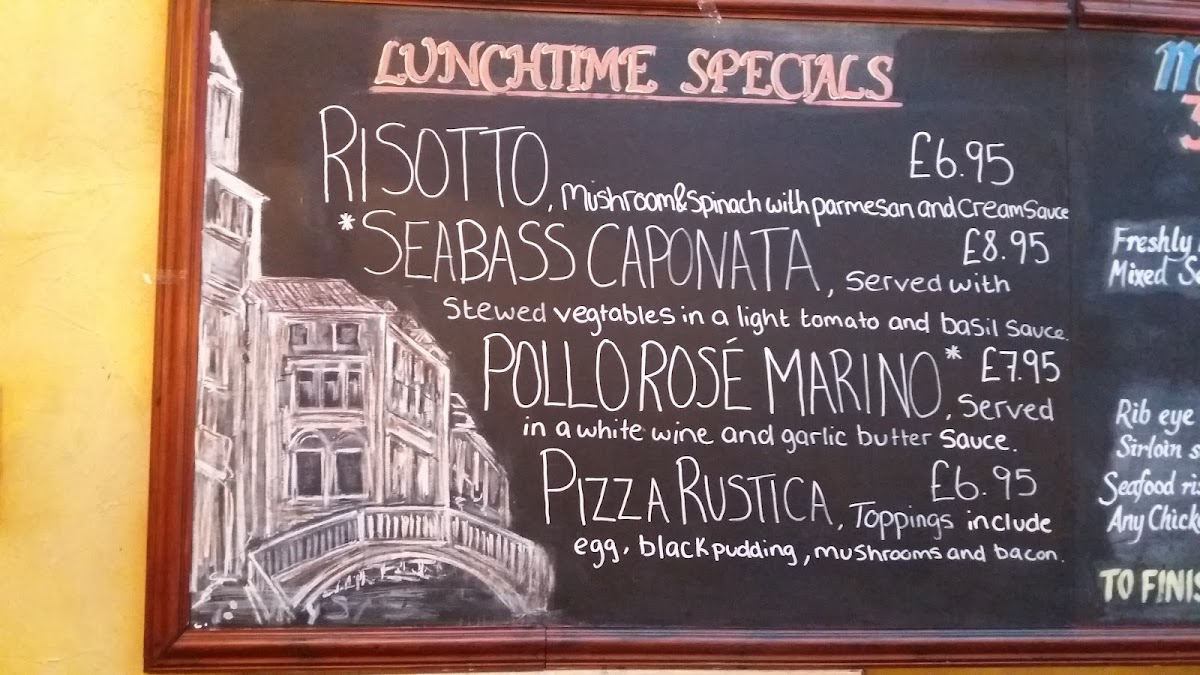 LUNCHTIME SPECIALS
RISOTTO, £6.95
Mushroom & Spinach with parmesan and Cream Sauce
*SEABASS CAPONATA, £8.95
Served with
Stewed vegtables in a light tomato and basil sauce.
POLLO ROSÉ MARINO*, £7.95
Served
in a white wine and garlic butter sauce.
PIZZA RUSTICA, £6.95
Toppings include
egg, black pudding, mushrooms and bacon.
Freshly
Mixed
Rib eye
Sirloin
Seafood
Any
TO